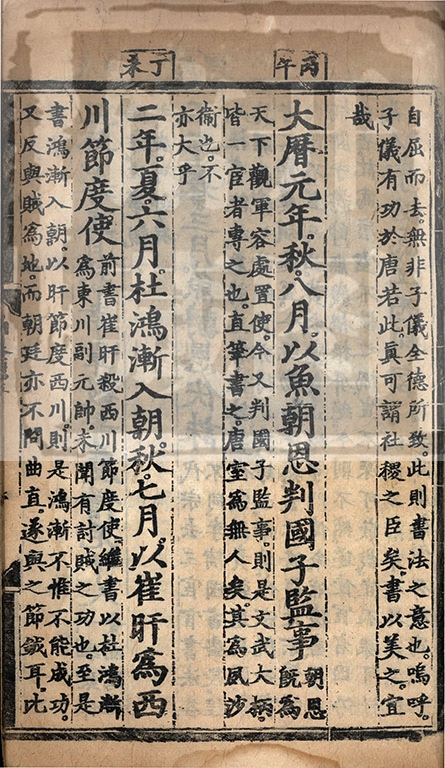 丙午
自屈而去。無非子儀全德所致。此則書法之意也。嗚呼。
子儀有功於唐若此。眞可謂社稷之臣矣。書以美之。宜
哉
大曆元年。秋。八月。以魚朝恩判國子監事
朝恩
既爲
天下觀軍容處置使。今又判國子監事。則是文武大柄。
皆一宦者專之也。直筆書之。唐室爲無人矣。其爲風沙
衞也。不
亦大乎
丁未
二年。夏。六月。杜鴻漸入朝。秋。七月。以崔旰爲西
川節度使
前書崔旰殺西川節度使。繼書以杜鴻漸
爲東川副元帥。未聞有討賊之功也。至是
書鴻漸入朝。以旰節度西川。則是鴻漸不惟不能成功。
又反與賊爲地。而朝廷亦不問曲直。遂與之節鉞耳。此